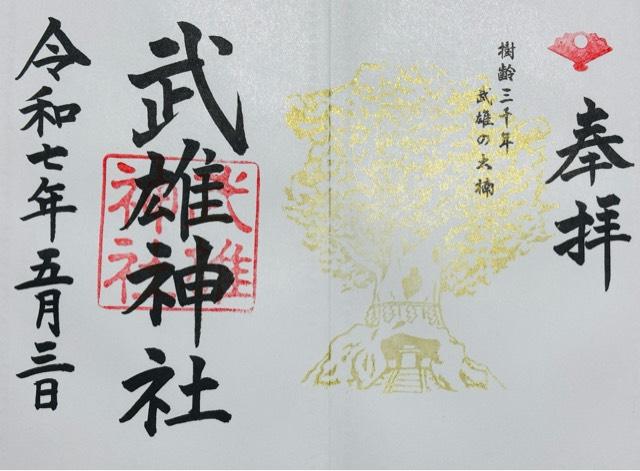 奉拝
樹齢三千年
武雄の大楠
武雄神社
武雄
神社
令和七年五月三日